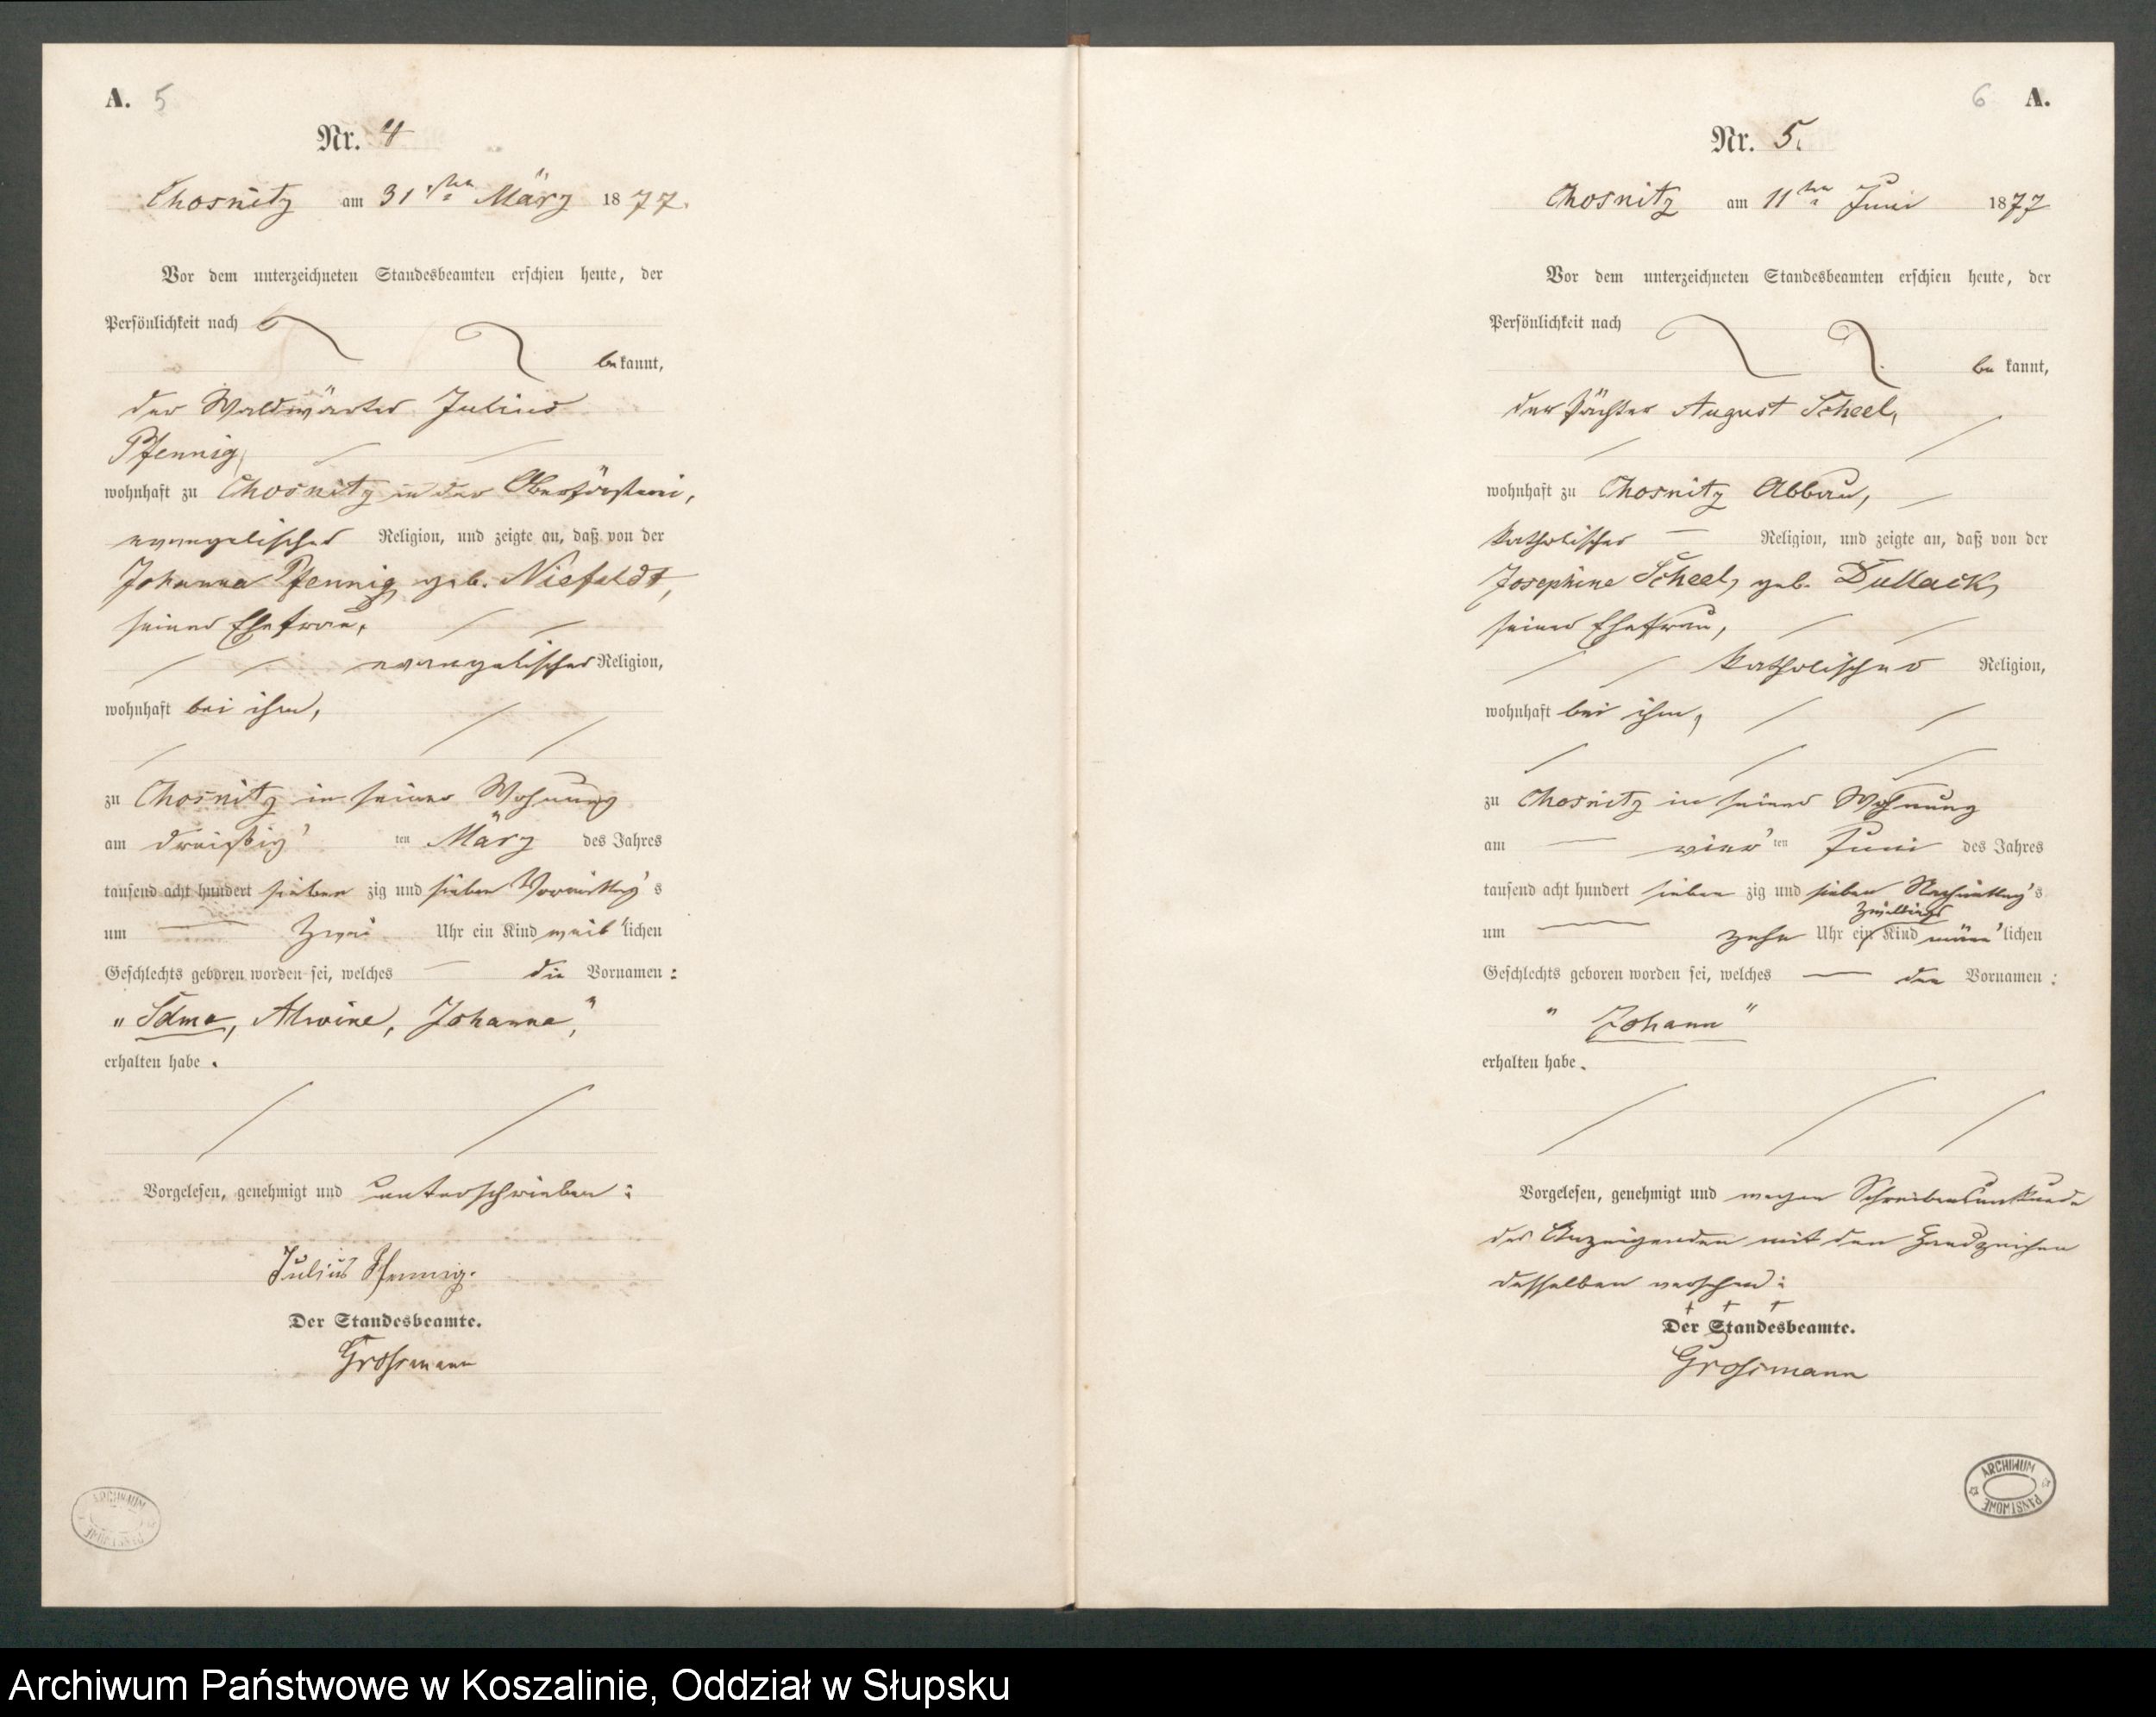 A. 5
Nr. 4
Chosnitz am 31sten März 1877.
Vor dem unterzeichneten Standesbeamten erschien heute, der
Persönlichkeit nach
bekannt,
der Waldwärter Julius
Pfennig,
wohnhaft zu Chosnitz in der Oberförsterei,
evangelischer Religion, und zeigte an, daß von der
Johanna Pfennig geb. Niefeldt,
seiner Ehefrau,
evangelischer Religion,
wohnhaft bei ihm,
zu Chosnitz in seiner Wohnung
am dreißig'ten März des Jahres
tausend acht hundert siebenzig und sieben Vormittag's
um zwei Uhr ein Kind weib'lichen
Geschlechts geboren worden sei, welches die Vornamen:
„ Alwine, Johanna,"
erhalten habe.
Vorgelesen, genehmigt und unterschrieben:
Julius Pfennig.
Der Standesbeamte.
Grossmann
ARCHIWUM PAŃSTWOWE
6 A.
Nr. 5.
Chosnitz am 11ten Juni 1877
Vor dem unterzeichneten Standesbeamten erschien heute, der
Persönlichkeit nach
bekannt,
der Pächter August Scheel,
wohnhaft zu Chosnitz Abbau,
katholischer Religion, und zeigte an, daß von der
Josephine Scheel, geb. Dullack,
seiner Ehefrau,
katholischer Religion,
wohnhaft bei ihm,
zu Chosnitz in seiner Wohnung
am vier'ten Juni des Jahres
tausend acht hundert siebenzig und sieben Nachmittag's
Zwillings
um zehn Uhr ein Kind männ'lichen
Geschlechts geboren worden sei, welches den Vornamen:
" Johann "
erhalten habe.
Vorgelesen, genehmigt und wegen Schreibensunkunde
des Anzeigenden mit den Handzeichen
desselben versehen:
† † †
Der Standesbeamte.
Grossmann
ARCHIWUM PAŃSTWOWE
Archiwum Państwowe w Koszalinie, Oddział w Słupsku